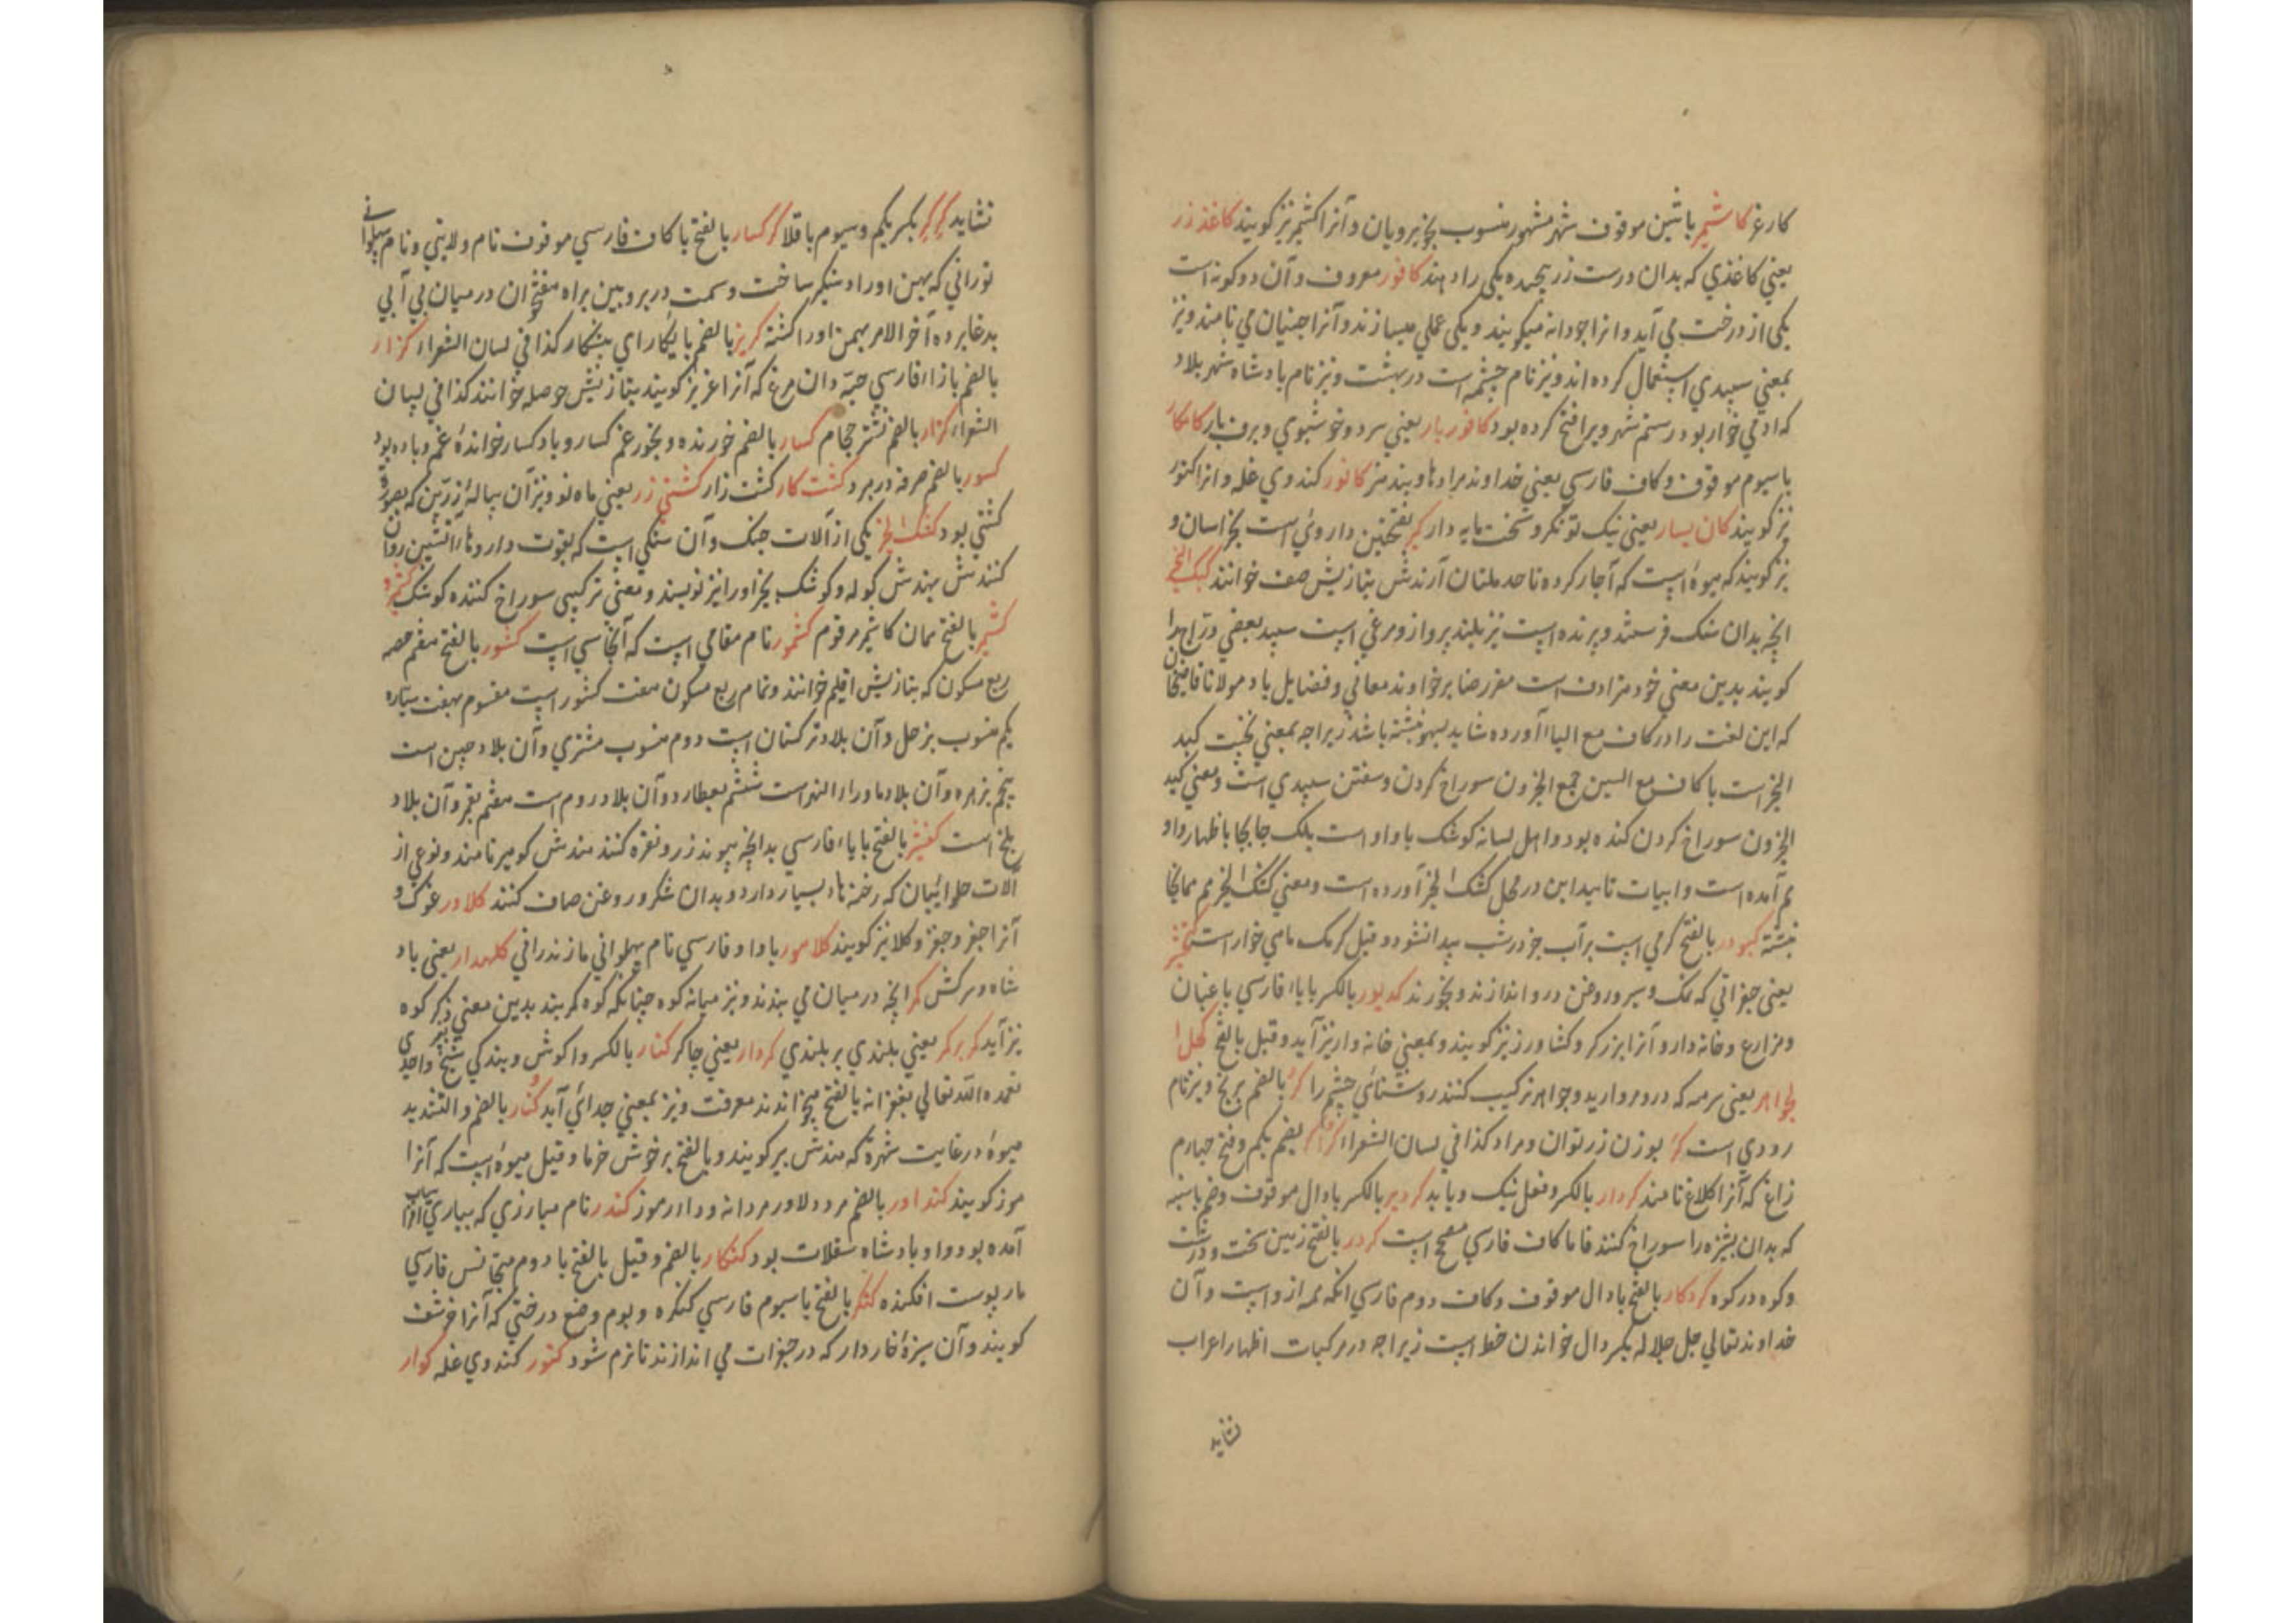 کارغ کاشمیر باشین موقوف شهر مشهور منسوب بخوبرویان و آنرا کشمیر نیز کویند کاغذ زر
یعنی کاغذی که بدان درست زر پیچیده یکی را دهند کافور معروف و آن دو کونه است
یکی از درخت می آید و انرا جودانه میکویند و یکی عملی میسازند و آنرا جنیان می نامند و نیز
بمعنی سپیدی استعمال کرده اند و نیز نام چشمه است در بهشت و نیز نام پادشاه شهر بلاد
که ادمی خوار بود رستم شهر ویرا فتح کرده بود کافور بار یعنی سرد و خوشبوی و برف بار کامکار
باسیوم موقوف و کاف فارسی یعنی خداوند مرادها و بندمنز کانور کندوی غله و انرا کنور
نیز کویند کان یسار یعنی نیک تونکر و سخت مایه دار کبر بفتحتین داروئ است بخراسان و
نیز کویند که میوهٔ است که آچار کرده تا حد ملتان آرندش بتازیش صف خوانند کبک انجیر
انچه بدان سنک فرستند و پرنده است تیز بلند پرواز و مرغی است سپید بعضی دراج را
کویند بدین معنی خود مرادف است مقرر ضایر خداوند معانی و فضایل باد مولانا قاضیخان
که این لغت را در کاف مع الیا آورده شاید بسهو نبشته باشد زیراچه بمعنی نخست کبد
انجیر است با کاف مع السین جمع انجیزون سوراخ کردن و سفتن سپیدی است و معنی کید
انجیزون سوراخ کردن کنده بود و اهل لسانه کوشک با واو است بلک جابجا باظهار واو
هم آمده است و ابیات تائید این در محل کشک انجیر آورده است و معنی کشک انجیر هم همانجا
نبشته کبودر بالفتح کرمی است بر آب جز در شب پیدا نشود و قیل کرمک ماهی خوار است کخیر
یعنی جغراتی که نمک و سیر و روغن درو اندازند و بخورند کدیور بالکسر بایاء فارسی باغبان
و مزارع و خانه دار و آنرا برزکر و کشاورز نیز کویند و بمعنی خانه وار نیز آید و قیل بالفتح کحل ا
لجواهر یعنی سرمه که درو مروارید و جواهر ترکیب کنند روشنائی چشم را کر بالضم برنج و نیز نام
رودی است کر بوزن زر توان و مراد کذا فی لسان الشعراء کرکر بضم یکم و فتح چهارم
زاغ که آنرا کلاغ نامند کردار بالکسر و فعل نیک و یا بد کردبر بالکسر بادال موقوف و ضم باسنبه
که بدان بشیزه را سوراخ کنند فاما کاف فارسی مصحح است کردر بالفتح زمین سخت و درشت
و کوه در کوه کردکار بالفتح بادال موقوف و کاف دوم فارسی انکه همه از واست و آن
خداوند تعالی جل جلاله بکسر دال خواندن خطا است زیراچه در مرکبات اظهار اعراب
نشاید
نشاید کرکر بکسر یکم و سیوم باقلا کرکسار بالفتح باکاف فارسی موقوف نام ولایتی و نام پهلوانی
تورانی که بهمن اورا دستکیر ساخت و سمت در پروبین براه هفتخوان در میان بی آبی
بدغا برده آخر الامر بهمن اورا کشته کریز بالضم بایکار ای بیشکار کذا فی لسان الشعراء کزار
بالضم بازاء فارسی حبّه دان مرغ که آنرا غریز کویند بتازیش حوصله خوانند کذا فی لسان
الشعراء کزار بالضم نشتر حجام کسار بالضم خورنده و بخور غم کسار و باد کسار خواندهٔ غم و باده بود
کسور بالضم صرفه در مرد کشت کار کشت زار کشتی زر یعنی ماه نو و نیز آن پیالهٔ زرین که بصورت
کشتی بود کشک انجیر یکی از آلات جنک و آن سنکی است که بقوت داروهاء آتشین روان
کنندش بهندش کوله و کوشک بجز اورا نیز نویسند و معنی ترکیبی سوراخ کننده کوشک کشمرو
کشمیر بالفتح همان کاشمیر مرقوم کشمور نام مقامی است که آنجا سی است کشور بالفتح هفتم حصه
ربع مسکون که بتازیش اقلیم خوانند و تمام ربع مسکون هفت کشور است مقسوم بهفت سیاره
یکم منسوب بزحل و آن بلاد ترکستان است دوم منسوب مشتری و آن بلاد چین است
پنجم بزهره و آن بلاد ماوراء النهر است ششم بعطارد و آن بلاد روم است هفتم بقمر و آن بلاد
بلخ است کفشیر بالفتح بایاء فارسی بدانچه پیوند زر و نقره کنند هندش کومیر نامند و نوعی از
آلات حلوائیان که رخنه هاء بسیار دارد و بدان شکر و روغن صاف کنند کلاور غوک و
آنرا جغز و چغز و کلا نیز کویند کلاهور باواو فارسی نام پهلوانی مازندرانی کلهدار یعنی باد
شاه و سرکش کمر انچه در میان می بندند و نیز میانه کوه چنانکه کوه کمر بند بدین معنی ذکر کوه
نیز آید کمر برکمر یعنی بلندی بر بلندی کردار یعنی چاکر کنار بالکسر واکوش و بندکی شیخ واحدی
تغمده الله تعالی بغفرانه بالفتح میخواندند معرفت و نیز بمعنی جدائی آید کنار بالضم و التشدید
میوهٔ در غایت شهره که هندش بیر کویند و بالفتح برخوش خرما و قیل میوهٔ است که آنرا
موز کویند کنداور بالضم مرد دلاور مردانه و دادر موز کندر نام مبارزی که بیاری افراسیاب
آمده بود و او پادشاه سقلات بود کنکار بالضم و قیل بالفتح با دوم متجانس فارسی
مار پوست افکنده کنکر بالفتح باسیوم فارسی کنکره و بوم و ضع درختی که آنرا خرشف
کویند و آن سبزهٔ خاردار که در جغرات می اندازند تا نرم شود کنور کندوی غله کوار